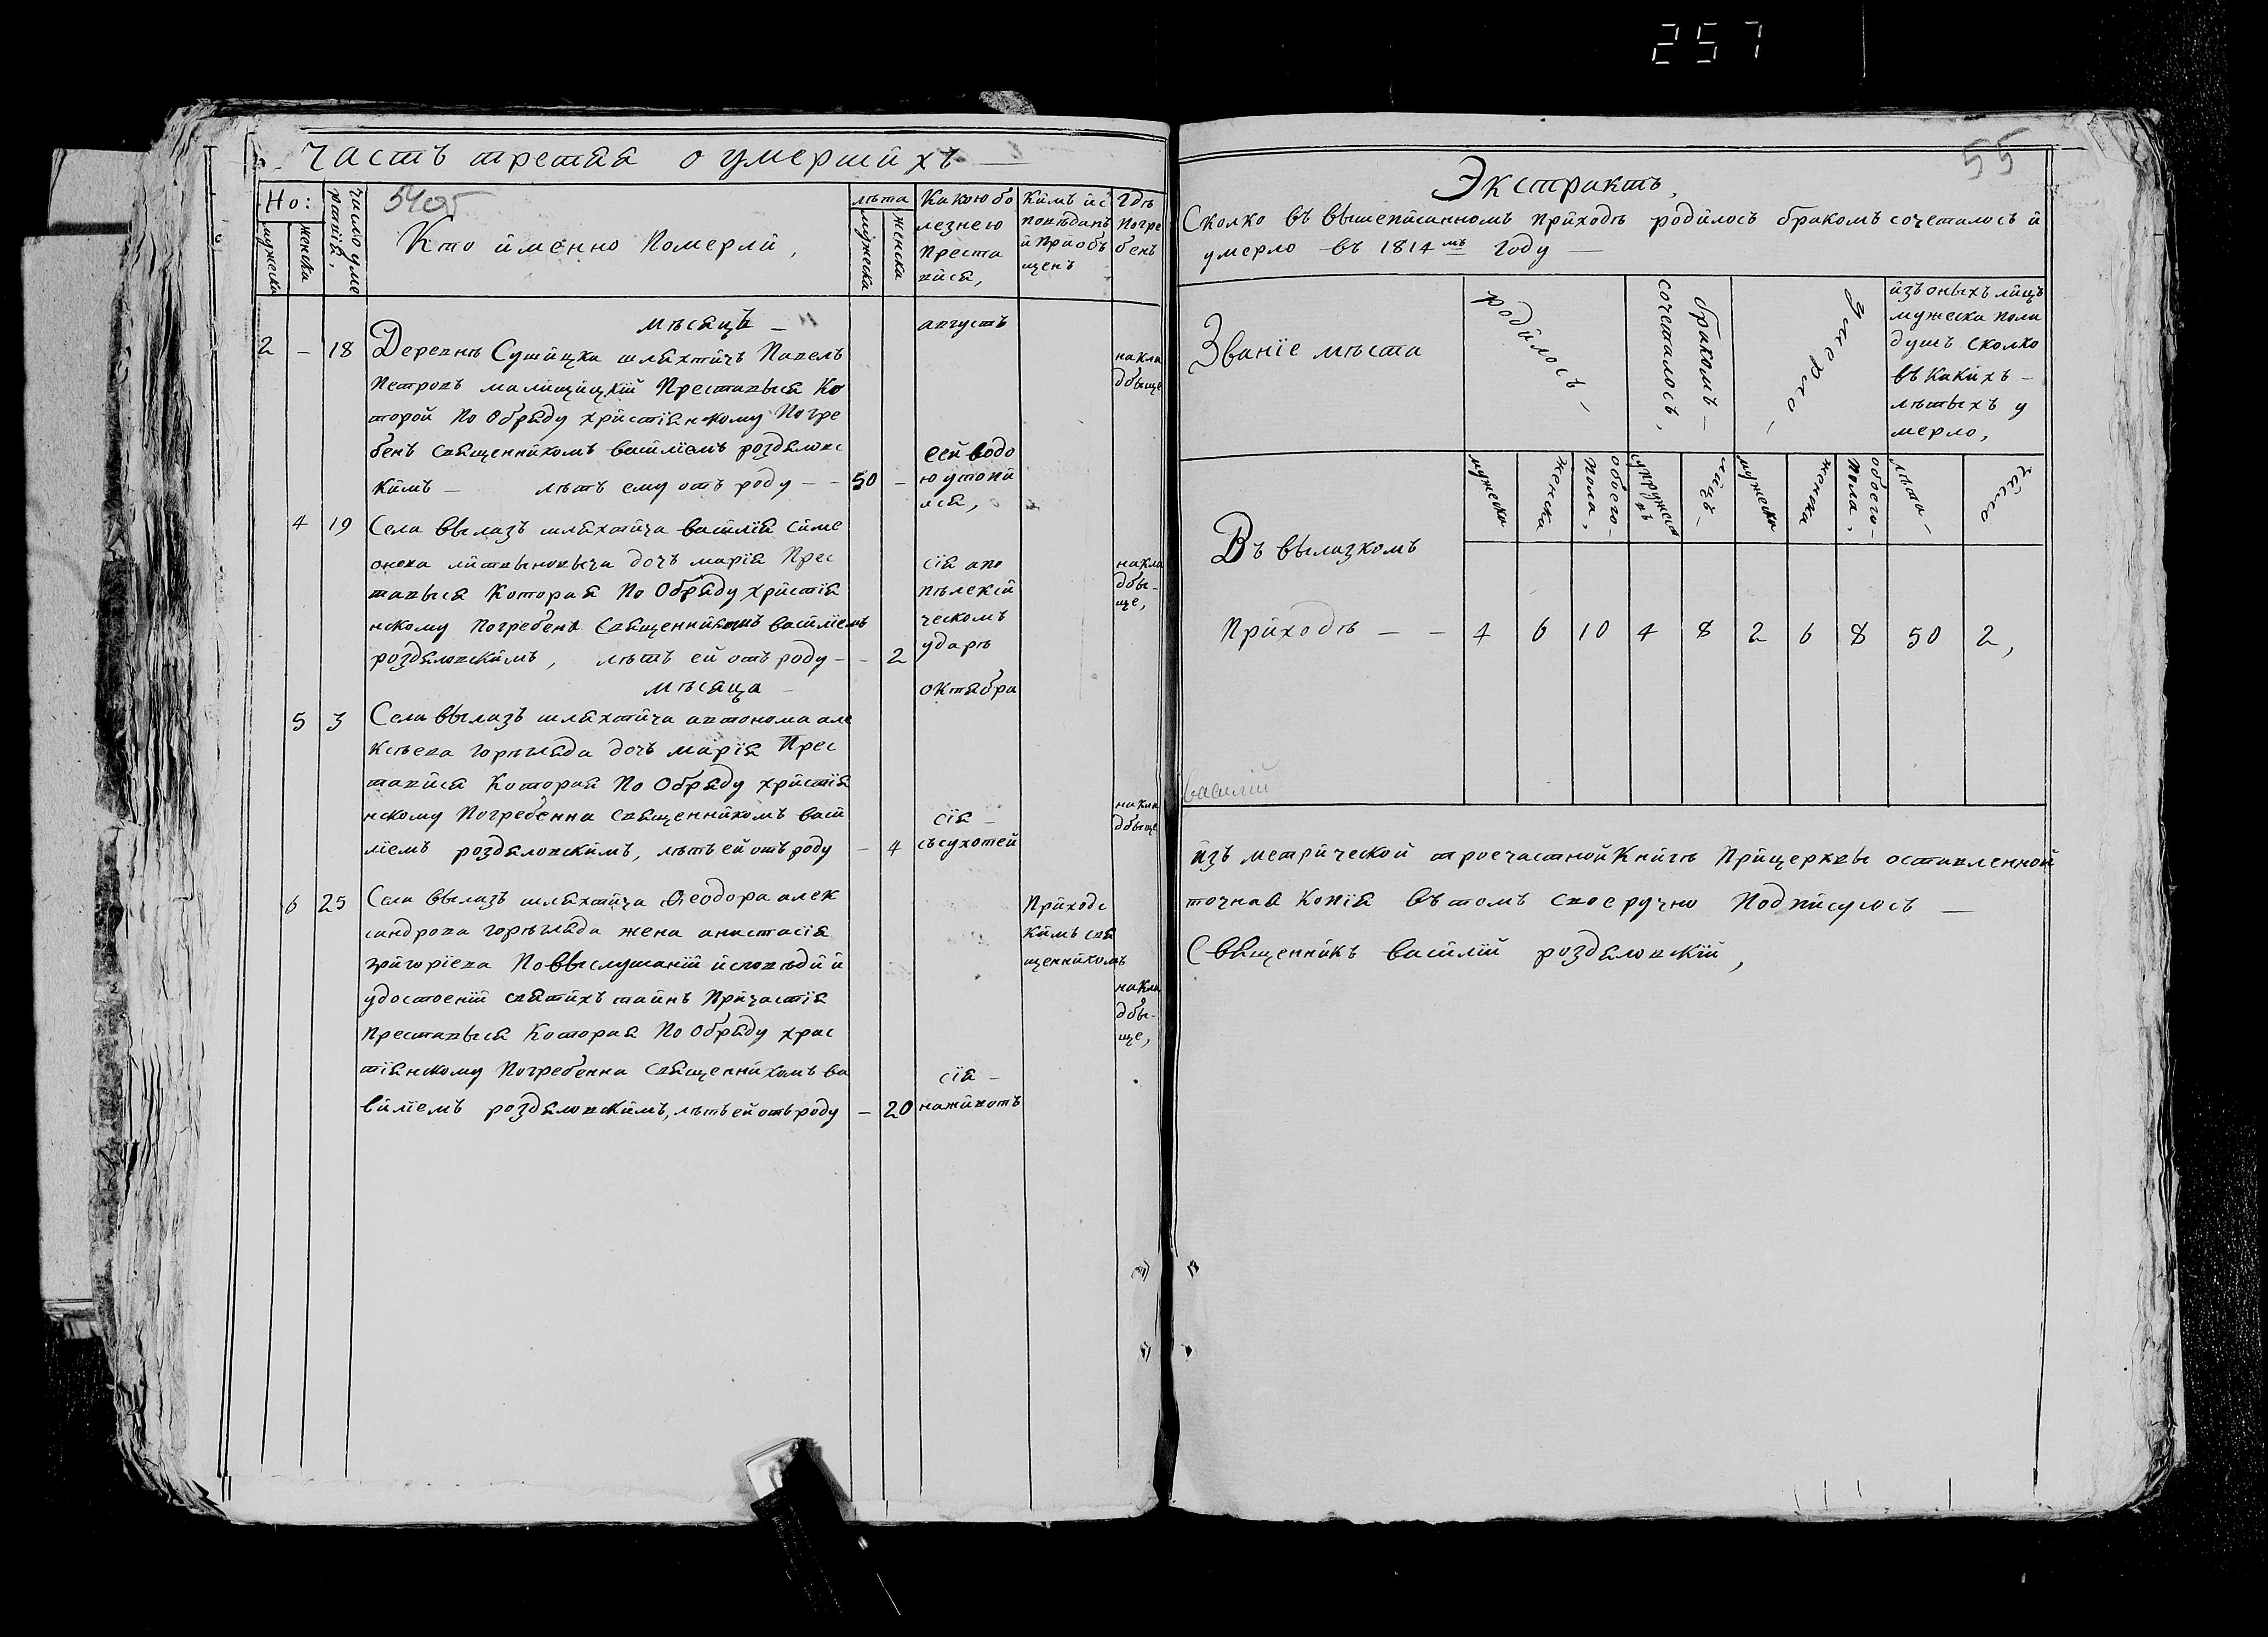 257
55
Часть третая о умершихъ
5405
Но:
мужеска
женска
число умертвій,
Кто именно Померли,
лѣта
мужеска
женска
Какою бо
лезнею
преста
вися,
Кимъ ис
повѣданъ
и приоб
щенъ
Гдѣ
Погре
бенъ
мѣсяцъ — августъ
2 — 18 Деревнѣ Сушицка шляхтичъ Павелъ
Петровъ малищицкій Преставыся Ко
торой По Обряду христіянскому Погре
бенъ священникомъ василіемъ роздялово
кимъ — лѣтъ ему отъ роду — — 50 —
сей водо
ю утопи
лся,
накла
дбыще
4 19 Села Вылазъ шляхтича василія симе
онова литвыновыча дочъ марія Прес
тавыся Которая По Обряду христія
нскому Погребена священникомъ василіемъ
роздяловскимъ, лѣтъ ей отъ роду — — 2
сія апо
плексій
ческомъ
ударѣ
накла
дбы-
ще,
мѣсяца — октябра
5 3 Села Вылазъ шляхтича автонома але
ксѣева горегляда дочъ марія Прес
тавися Которая По Обряду христія
нскому Погребенна священникомъ васи
ліемъ роздяловскимъ, лѣтъ ей отъ роду — 4
сія —
съсухотей
накла
дбыще
6 25 Села Вылазъ шляхтича Ѳеодора алек
сандрова горегляда жена анастасія
григоріева По выслушаній исповѣди и
удостоеній святихъ таинъ Причастія
Преставыся Которая По Обряду хрис
тіянскому Погребенна священникомъ ва
силіемъ роздяловскимъ, лѣтъ ей отъ роду — 20
сія —
наживотъ
Приходс
кимъ свя
щенникомъ
накла
дбы-
ще,
Экстрактъ,
Сколко въ вышеписанномъ приходѣ родилось бракомъ сочеталось и
умерло въ 1814мъ Году —
Званіе мѣста
родилось —
бракомъ —
сочеталось,
умерло —
изъ оныхъ лицъ
мужеска пола
душъ сколко
въ какихъ —
лѣтыхъ у
мерло,
мужеска
женска
обоего-
пола,
супружествъ
лицъ —
мужеска
женска
обоего-
пола,
лѣта —
число
Въ вылазкомъ
Приходѣ — — 4 6 10 4 8 2 6 8 50 2,
василій
изъ метрической троечастной Книгѣ Прицерквы оставленной
точная Копія вътомъ своеручно Подписуюсь —
Священникъ василій роздяловскій,